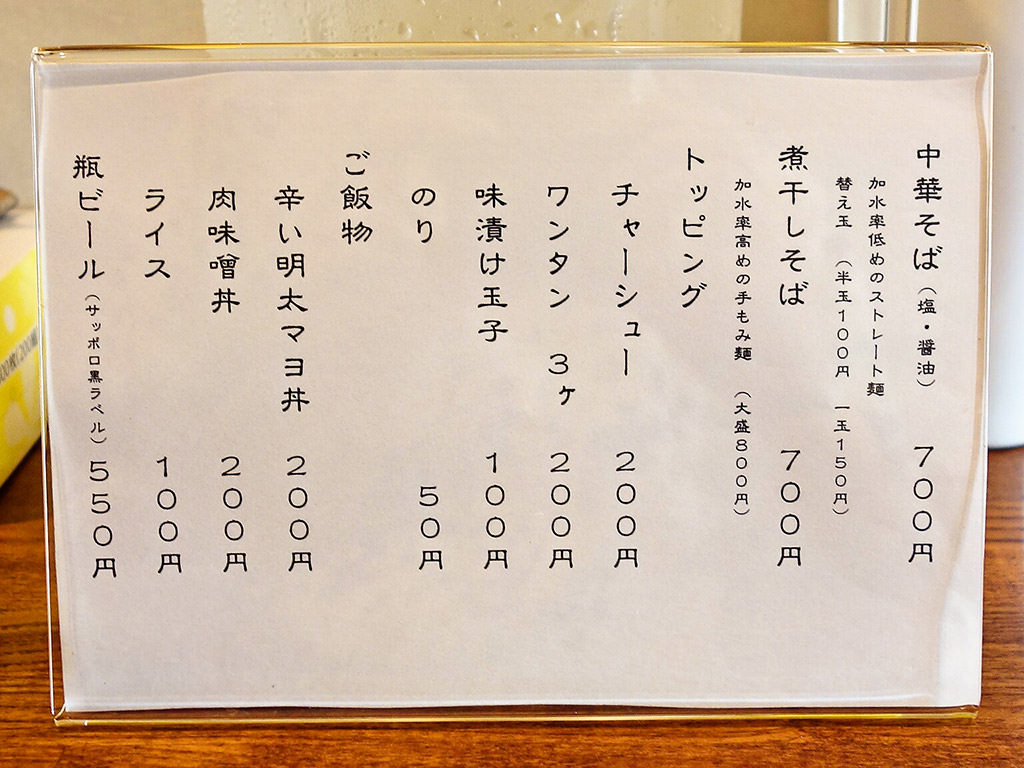 中華そば（塩・醤油）　７００円
加水率低めのストレート麺
替え玉　（半玉１００円　一玉１５０円）
煮干しそば　７００円
加水率高めの手もみ麺　（大盛８００円）
トッピング
チャーシュー　２００円
ワンタン　３ヶ　２００円
味漬け玉子　１００円
のり　５０円
ご飯物
辛い明太マヨ丼　２００円
肉味噌丼　２００円
ライス　１００円
瓶ビール（サッポロ黒ラベル）５５０円